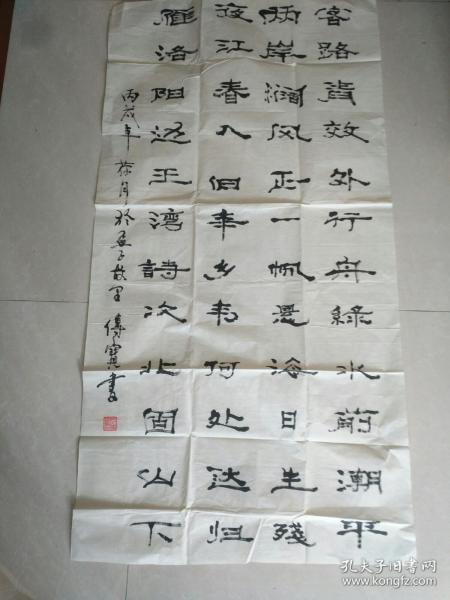 客路青效外行舟綠水前潮平
两岸濶风正一帆悬海日生残
夜江春入旧年乡书何处达归
雁洛阳边王湾詩次北固山下
丙戌年 荷月於孟子故里 傅寶 書
孔夫子旧书网
www.kongfz.com